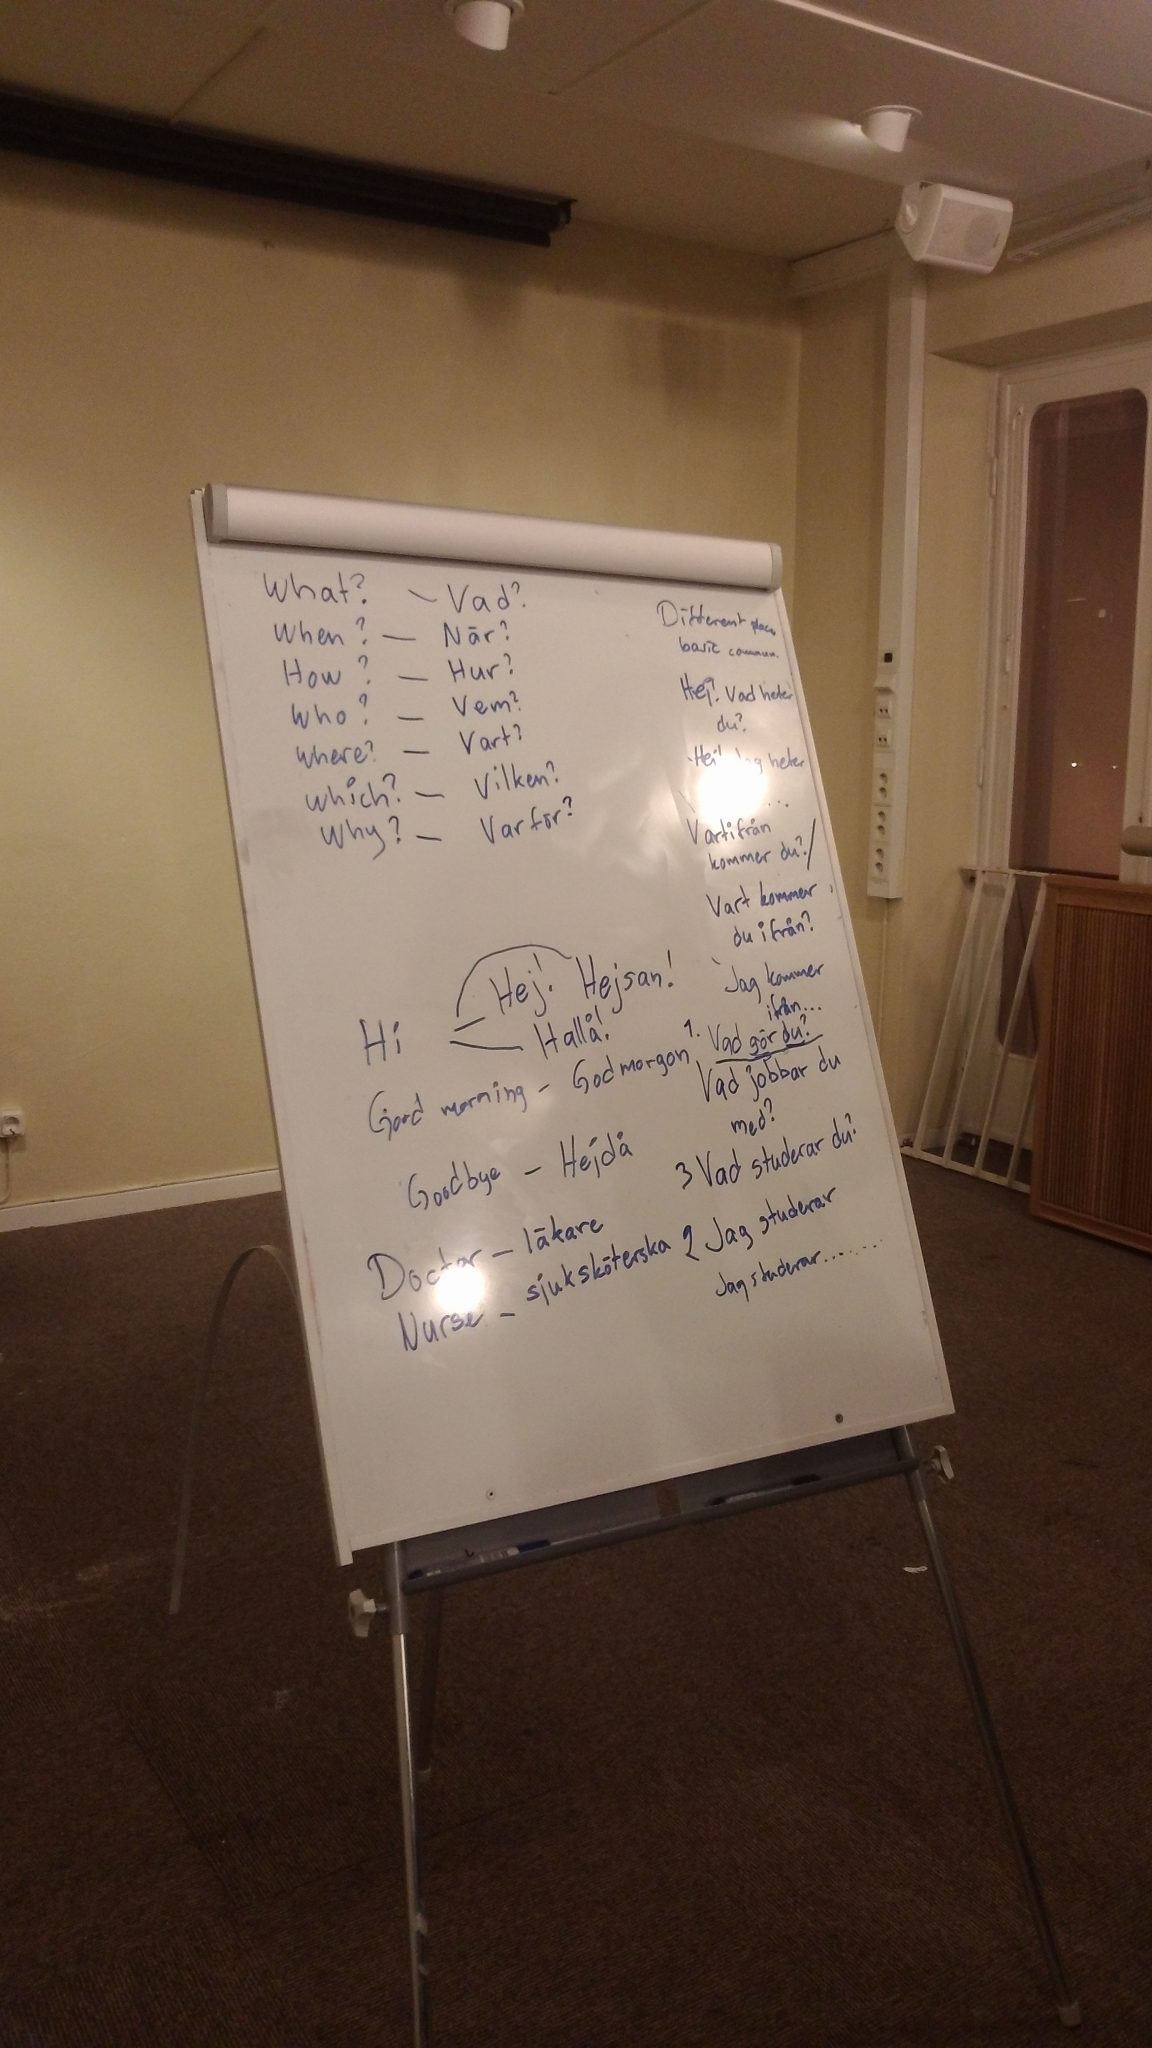 What? - Vad?
When? - När?
How? - Hur?
Who? - Vem?
Where? - Vart?
Which? - Vilken?
Why? - Varför?
Hi
Hej! Hejsan!
Hallå!
Good morning - Godmorgon
Goodbye - Hejdå
Doctor - läkare
Nurse - sjuksköterska
Different
basic commun.
Hej! Vad heter
du?
Hej! Jag heter
...
Vartifrån
kommer du?/
Vart kommer
du ifrån?
Jag kommer
ifrån...
1. Vad gör du?
Vad jobbar du
med?
3 Vad studerar du?
2 Jag studerar
Jag studerar.......